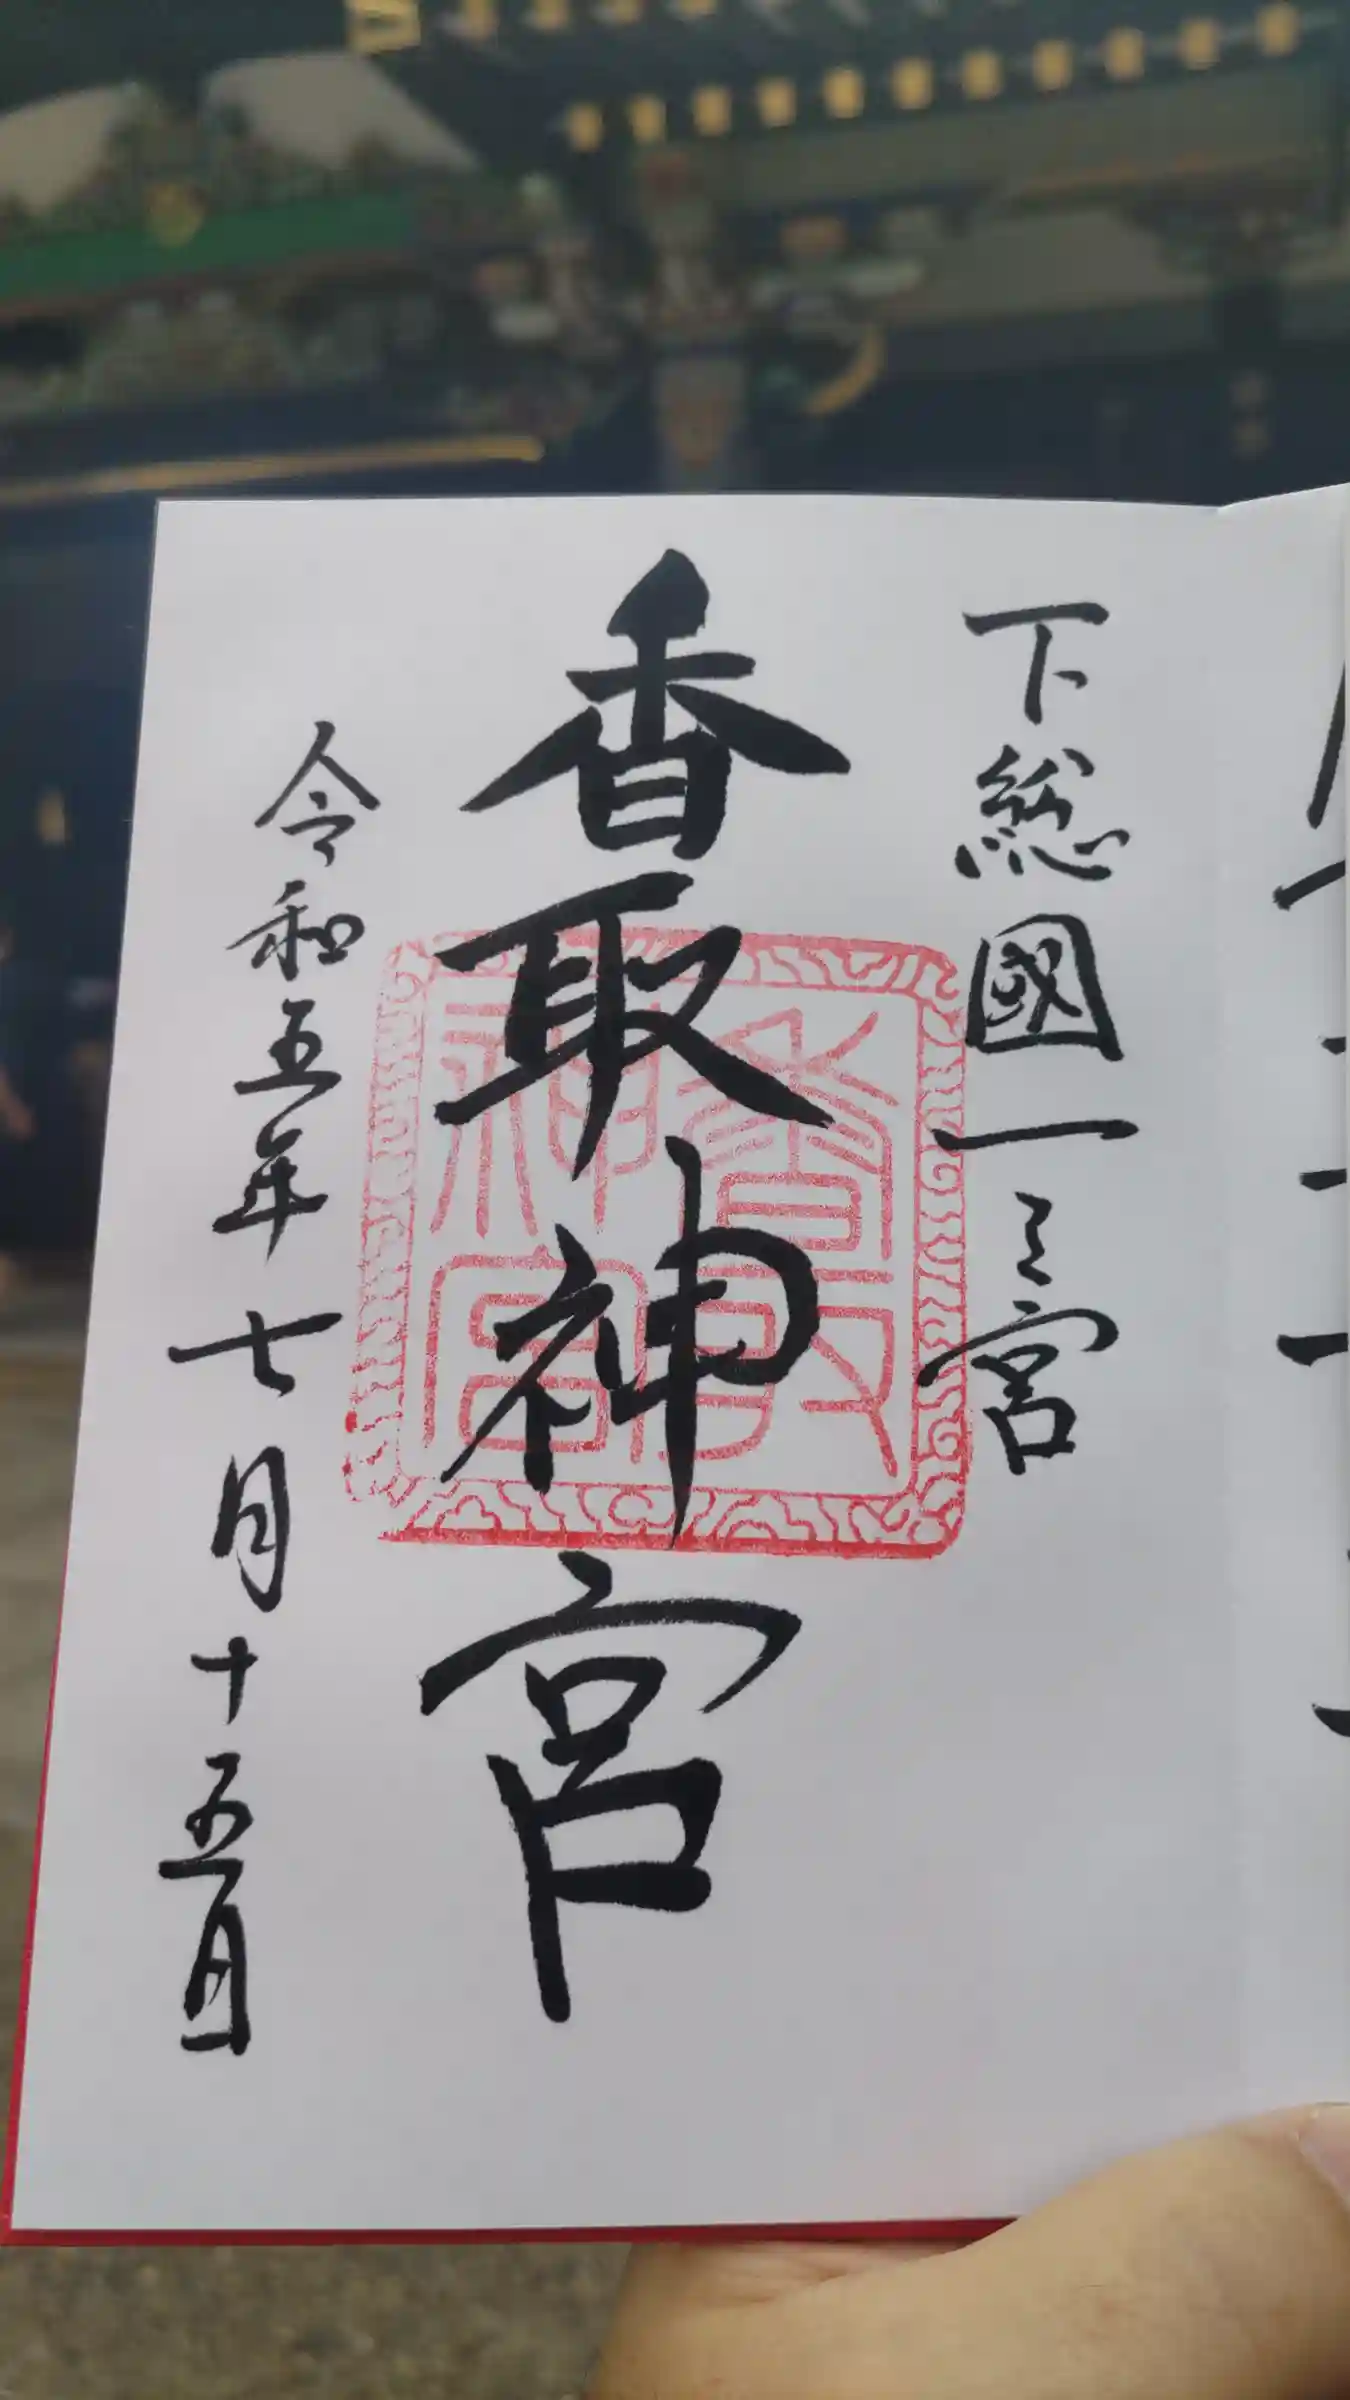 下総國一之宮
香取神宮
香取神宮
令和五年七月十五日